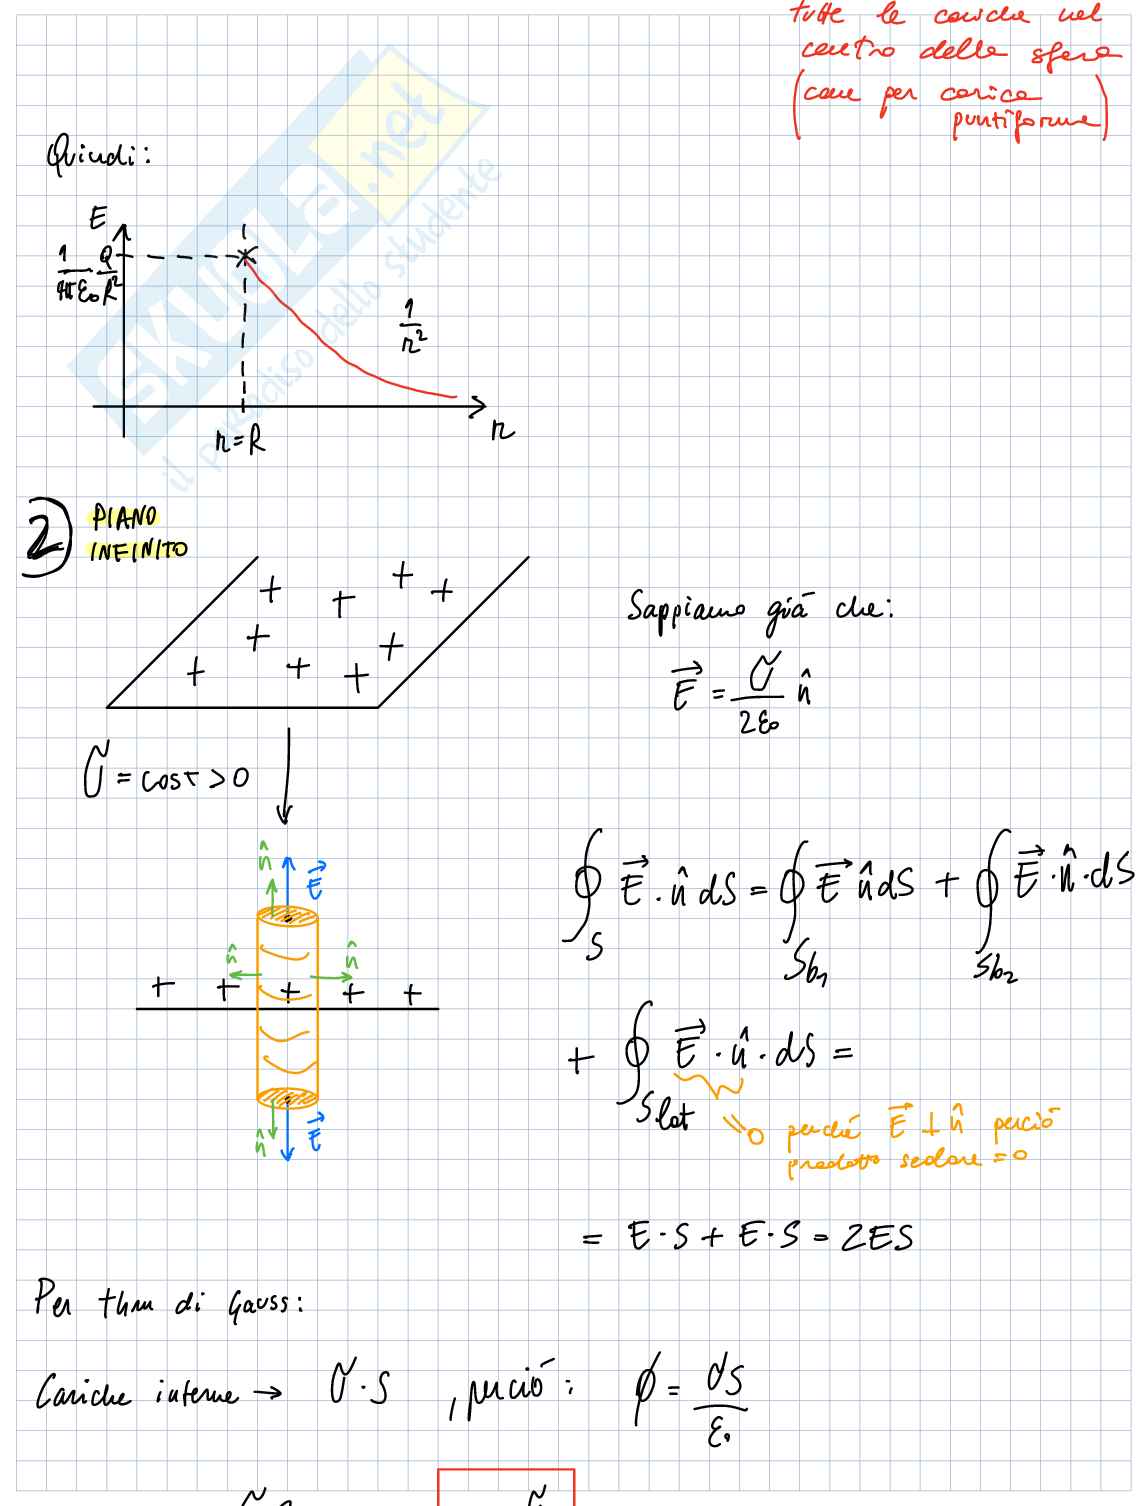 tutte le cariche nel
centro della sfera
(come per carica
puntiforme)
Quindi:
E
1/4πε₀ Q/R²
1/r²
r=R
r
SKUOLA.net
il paradiso dello studente
2) PIANO
INFINITO
+ + + + + + + + + +
Sappiamo già che:
E⃗ = σ/2ε₀ n̂
σ = cost > 0
n̂ E⃗
n̂ n̂
+ + + + +
n̂ E⃗
∮_S E⃗ · n̂ dS = ∮_Sb₁ E⃗ n̂ dS + ∮_Sb₂ E⃗ · n̂ · dS
+ ∮_Slat E⃗ · n̂ · dS =
=0 perché E⃗ ⊥ n̂ perciò
prodotto scalare = 0
= E·S + E·S = 2ES
Per thm di Gauss:
Cariche interne → σ·S , perciò: ϕ = σS/ε₀